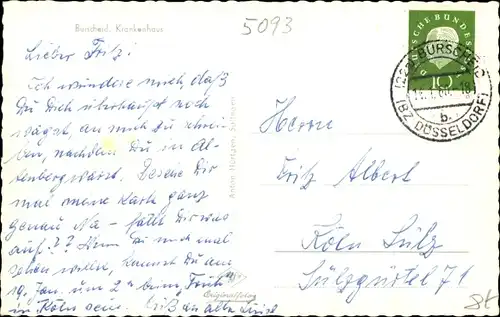 Burscheid. Krankenhaus
5093
Lieber Fritz!
Ich wundere mich, daß
Du Dich überhaupt noch
wagst, an mich zu schrei-
ben, nachdem Du in Al-
tenberg warst. Besieh Dir
mal meine Karte ganz
genau Na - fällt Dir was
auf?? Wenn Du mich mal
sehen willst, kannst Du am
19. Jan. um 2 beim Früh
in Köln sein. Gruß an alle
Anton Hürtgen,
Originalfoto
DEUTSCHE BUNDES
10
BURSCHEID
(BZ DÜSSELDORF)
b
Herrn
Fritz Albert
Köln Sülz
Sülzgürtel 71